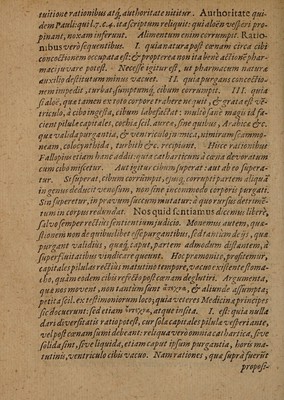 tuitione rationibus atq́; authoritate nititur. Authoritate quidem Pauli: qui l.7.c.4. ita scriptum reliquit: qui aloën vesperi propinant, noxam inferunt. Alimentum enim corrumpit. Rationibus verò sequentibus. I. quia natura post cœnam circa cibi concoctionem occupata est: & propterea non ita benè actioni pharmaci iuvare potest. Necesse igitur est, ut pharmacum naturæ auxilio destitutum minus vacuet. II. quia purgans concoctionem impedit, turbat, sumptumq́; cibum corrumpit. III. quia si aloë, quæ tamen ex toto corpore trahere nequit, & grata est vẽtriculo, à cibo ingesta, cibum labefactat: multo sanè magis id facient pilulæ capitales, cochiæ scil. aureæ, sine quibus, Arabicæ &c. quæ valida purgantia, & ventriculo inimica, nimirum scammoneam, colocynthida, turbith &c. recipiunt. Hisce rationibus Fallopius etiam hanc addit: quia catharticum à cœna devoratum cum cibo miscetur. Aut igitur cibum superat: aut ab eo superatur. Si superat, cibum corrumpit, ejusq́; corrupti partem aliquã in genus deducit venosum, non sine incommodo corporis purgati. Sin superetur, in pravum succum mutatur: à quo rursus detrimẽtum in corpus redundat. Nos quid sentiamus dicemus liberè, salvo semper rectiùs sentientium judicio. Monemus autem, quæstionem non de quibuslibet esse purgantibus, sed tantùm de ijs, quæ purgant validius, quæq́; caput, partem admodum distantem, à superfluitatibus vindicare queunt. Hoc præmonito, profitemur, capitales pilulas rectius matutino tempore, vacuo existente stomacho, quàm eodem cibis referto post cœnam deglutiri. Argumenta, quæ nos movent, non tantùm sunt & aliunde assumpta; petita scil. ex testimoniorum loco; quia veteres Medicinæ principes sic docuerunt: sed etiam atque insita. I. est quia nulla dari diversitatis ratio potest, cur sola capitales pilulæ vesperi ante, vel post cœnam sumi debeant: reliqua verò omnia cathartica, sive solida sint, sive liquida, etiam caput ipsum purgantia, horis matutinis, ventriculo cibis vacuo. Nam rationes, quæ supra fuerũt
proposi-